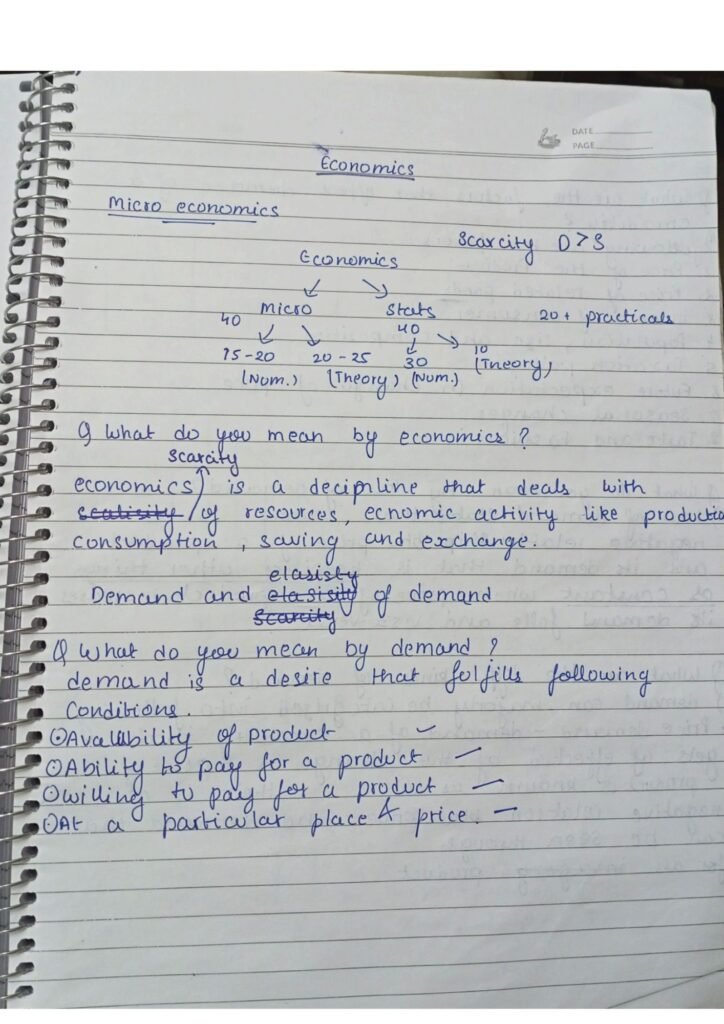 DATE
PAGE
Economics
Micro economics
Scarcity D>S
Economics
Micro Stats
40 40 20+ practicals
15-20 20-25 30 10
(Num.) (Theory) (Num.) (Theory)
Q What do you mean by economics?
scarcity
economics is a decipline that deals with
scatisity of resources, ecnomic activity like productio
consumption, saving and exchange.
elasisty
Demand and elasisity of demand
scarcity
Q What do you mean by demand?
demand is a desire that folfills following
Conditions.
Avalability of product
Ability to pay for a product
willing to pay for a product
At a particular place & price.